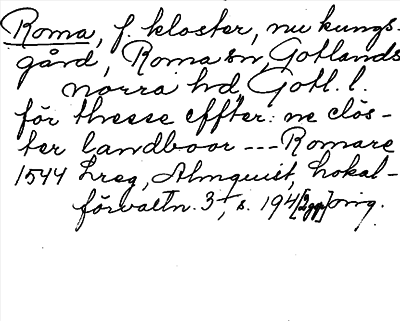 Roma, f. kloster, nu kungs-
gård, Roma sn, Gotlands
norra hd, Gotl. l.
för thesse effter: ne clös-
ter landboor --- Romare
1544 Lreg, Almquist, Lokal-
förvaltn. 3, s. 194 [2ggr] orig.